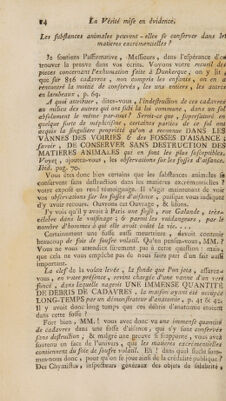 24 La Vérité mise en évidence.
Les substances animales peuvent-elles se conserver dans les
matieres excrémentielles ?
Je soutiens l'affirmative, Messieurs, dans l'espérance d'en
trouver la preuve dans vos écrits. Voyons votre recueil des
pieces concernant l'exhumation faite à Dunkerque, on y lit
que sur 816 cadavres, non enfermés en coffre, on en a
rencontré la moitié de conservés, les uns entiers, les autres
en lambeaux, p. 69.
A quoi attribuer, dites-vous, l'indestruction de ces cadavres
au milieu des autres qui ont subi la loi commune, dans un sol
absolument le même par-tout ? Seroit-ce que, superficiant en
quelque sorte de méphitisme, certaines parties de ce sol ont
acquis la singuliere propriété qu'on a reconnue DANS LES
VANNES DES VOIRIES & des FOSSES D'AISANCE,
savoir, DE CONSERVER SANS DESTRUCTION DES
MATIERES ANIMALES qui en sont les plus susceptibles.
Voyez, ajoutez-vous, les observations sur les fosses d'aisance.
Ibid. pag. 70.
Vous êtes donc bien certains que les substances animales se
conservent sans destruction dans les matieres excrémentielles ?
votre exposé en rend témoignage. Il s'agit maintenant de voir
vos observations sur les fosses d'aisance, puisque vous indiquez
d'y avoir recours. Ouvrons cet Ouvrage, & lisons.
J'y vois qu'il y avoit à Paris une fosse, rue Galande, très-
célebre dans le vuidange ; & parmi les vuidangeurs, par le
nombre d'hommes à qui elle avoit coûté la vie....
Certainement une fosse aussi meurtriere, devoit contenir
beaucoup de foie de soufre volatil. Qu'en pensez-vous, MM ?
Vous ne vous attendiez sûrement pas à cette question ; mais
que cela ne vous empêche pas de nous faire part d'un fait aussi
important.
La clef de la voûte levée, la sonde que l'on jeta, assurez-
vous, en votre présence, revint chargée d'une vanne d'un verd
foncé, dans laquelle nageoit UNE IMMENSE QUANTITÉ
DE DEBRIS DE CADAVRES, la maison ayant été occupée
LONG-TEMPS par un démonstrateur d'anatomie, p. 41 & 42.
Il y avoit donc long-temps que ces débris d'anatomie étoient
dans cette fosse ?
Fort bien, MM ! vous avez donc vu une immense quantité
de cadavres dans une fosse d'aisance, qui s'y sont conservés
sans destruction, & malgré une preuve si frappante, vous avez
soutenu en face de l'univers, que les matieres excrémentielles
contiennent du foie de soufre volatil. Eh ! dans quel siecle som-
mes-nous, pour qu'on se joue ainsi de la crédulité publique ?
Des Chymistes, inspecteurs généraux des objets de salubrité,